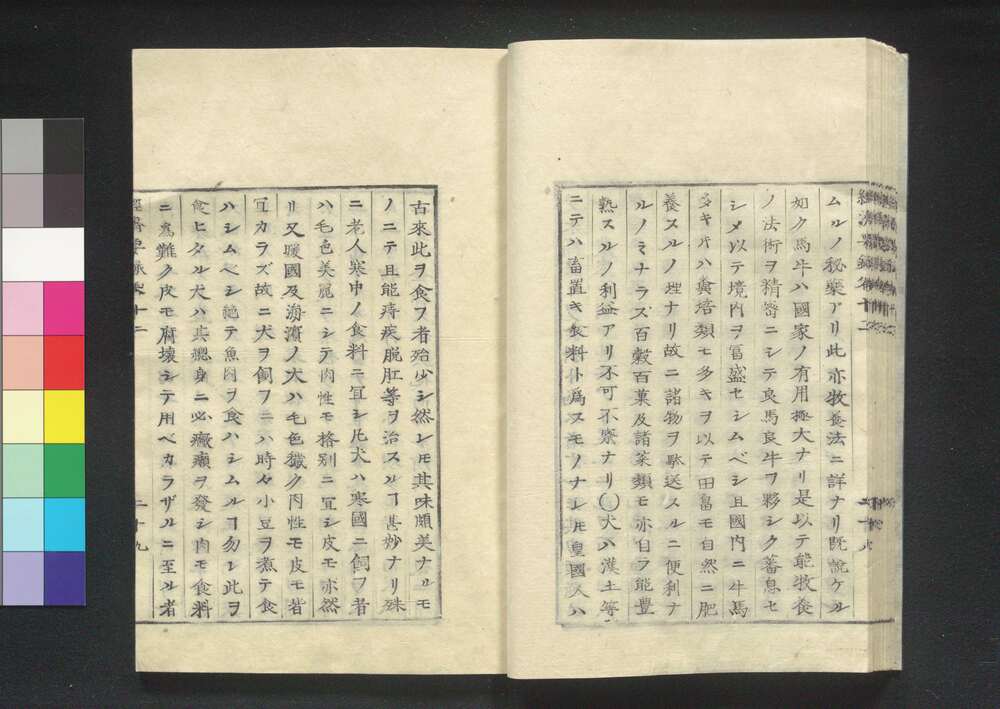 ムルノ秘藥アリ此亦牧養法ニ詳ナリ既說ケル
如ク馬牛ハ國家ノ有用極大ナリ是以テ能牧養
ノ法術ヲ精密ニシテ良馬良牛ヲ夥シク蕃息セ
シメ以テ境内ヲ富盛セシムベシ且國内ニ牛馬
多キ片ハ糞培類モ多キヲ以テ田畠モ自然ニ肥
養スルノ理ナリ故ニ諸物ヲ駄送スルニ便利ナ
ルノミナラズ百穀百菓及諸菜類モ亦自ラ能豊
熟スルノ利益アリ不可不察ナリ〇犬ハ漢土等
ニテハ畜置キ食料ト爲スモノナレ𪜈皇國人ハ
古來此ヲ食フ者殆少シ然レ𪜈其味頗美ナルモ
ノニテ且能痔疾脱肛等ヲ治スルヿ甚妙ナリ殊
ニ老人寒中ノ食料ニ宜シ凡犬ハ寒國ニ飼フ者
ハ毛色美麗ニシテ肉性モ格別ニ宜シ皮モ亦然
リ又暖國及海濱ノ犬ハ毛色穢ク肉性モ皮モ皆
宜カラズ故ニ犬ヲ飼フニハ時々小豆ヲ煮テ食
ハシムベシ絶テ魚肉ヲ食ハシムルヿ勿レ此ヲ
食ヒタル犬ハ其軀身ニ必癩瘡ヲ發シ肉モ食料
ニ爲難ク皮モ腐壊シテ用ベカラザルニ至ル者
經濟要錄卷十二
二十九